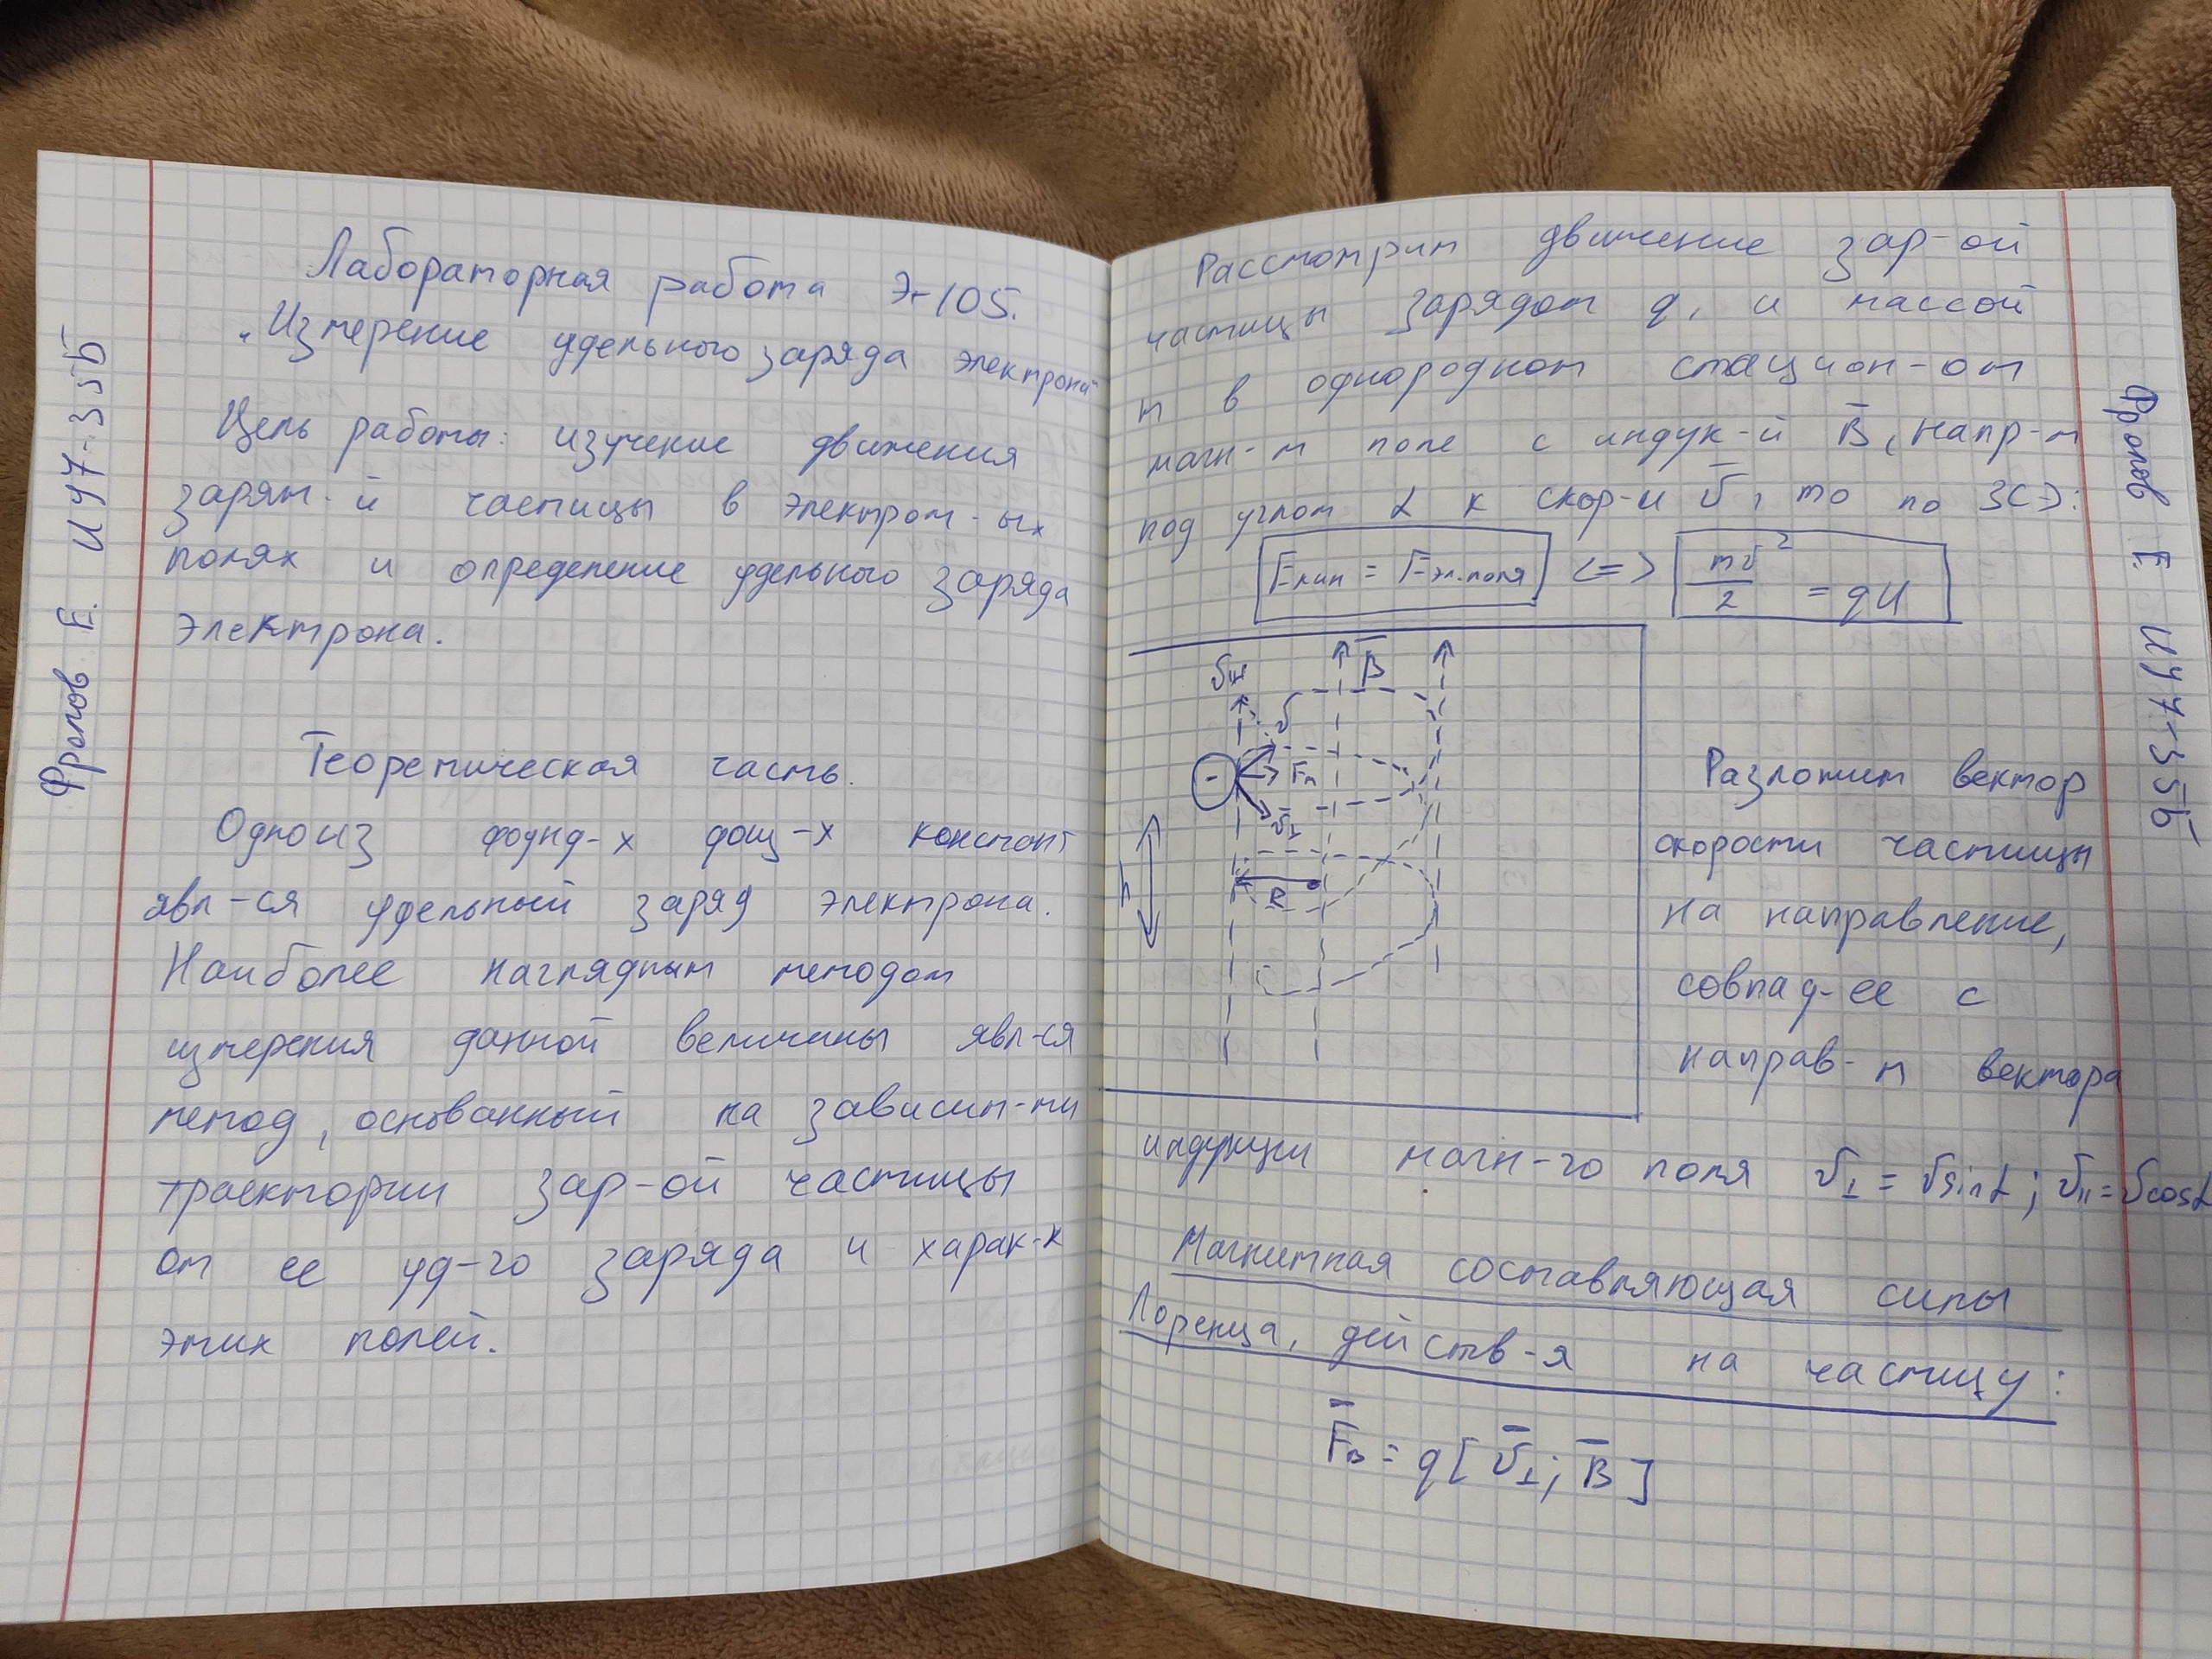 Фролов Е. ИУ7-35Б
Лабораторная работа Э-105.
"Измерение удельного заряда электрона"
Цель работы: изучение движения
заряж-й частицы в электром-ых
полях и определение удельного заряда
электрона.
Теоретическая часть.
Одно из фунд-х физ-х констант
явл-ся удельный заряд электрона.
Наиболее наглядным методом
измерения данной величины явл-ся
метод, основанный на зависим-ти
траектории зар-ой частицы
от ее уд-го заряда и харак-к
этих полей.
Рассмотрим движение зар-ой
частицы зарядом q, и массой
m в однородном стацион-ом
магн-м поле с индук-й B̅, напр-м
под углом α к скор-и v̅, то по ЗСЭ:
Eкин = Eэл.поля <=> mv²/2 = qU
v̅ B̅
v
Fл
v⊥
h
R
Разложим вектор
скорости частицы
на направление,
совпад-ее с
направ-м вектора
индукции магн-го поля v⊥ = v sinα; v|| = v cosα
Магнитная составляющая силы
Лоренца, действ-я на частицу:
F̅в = q[v̅⊥; B̅]
Фролов Е. ИУ7-35Б